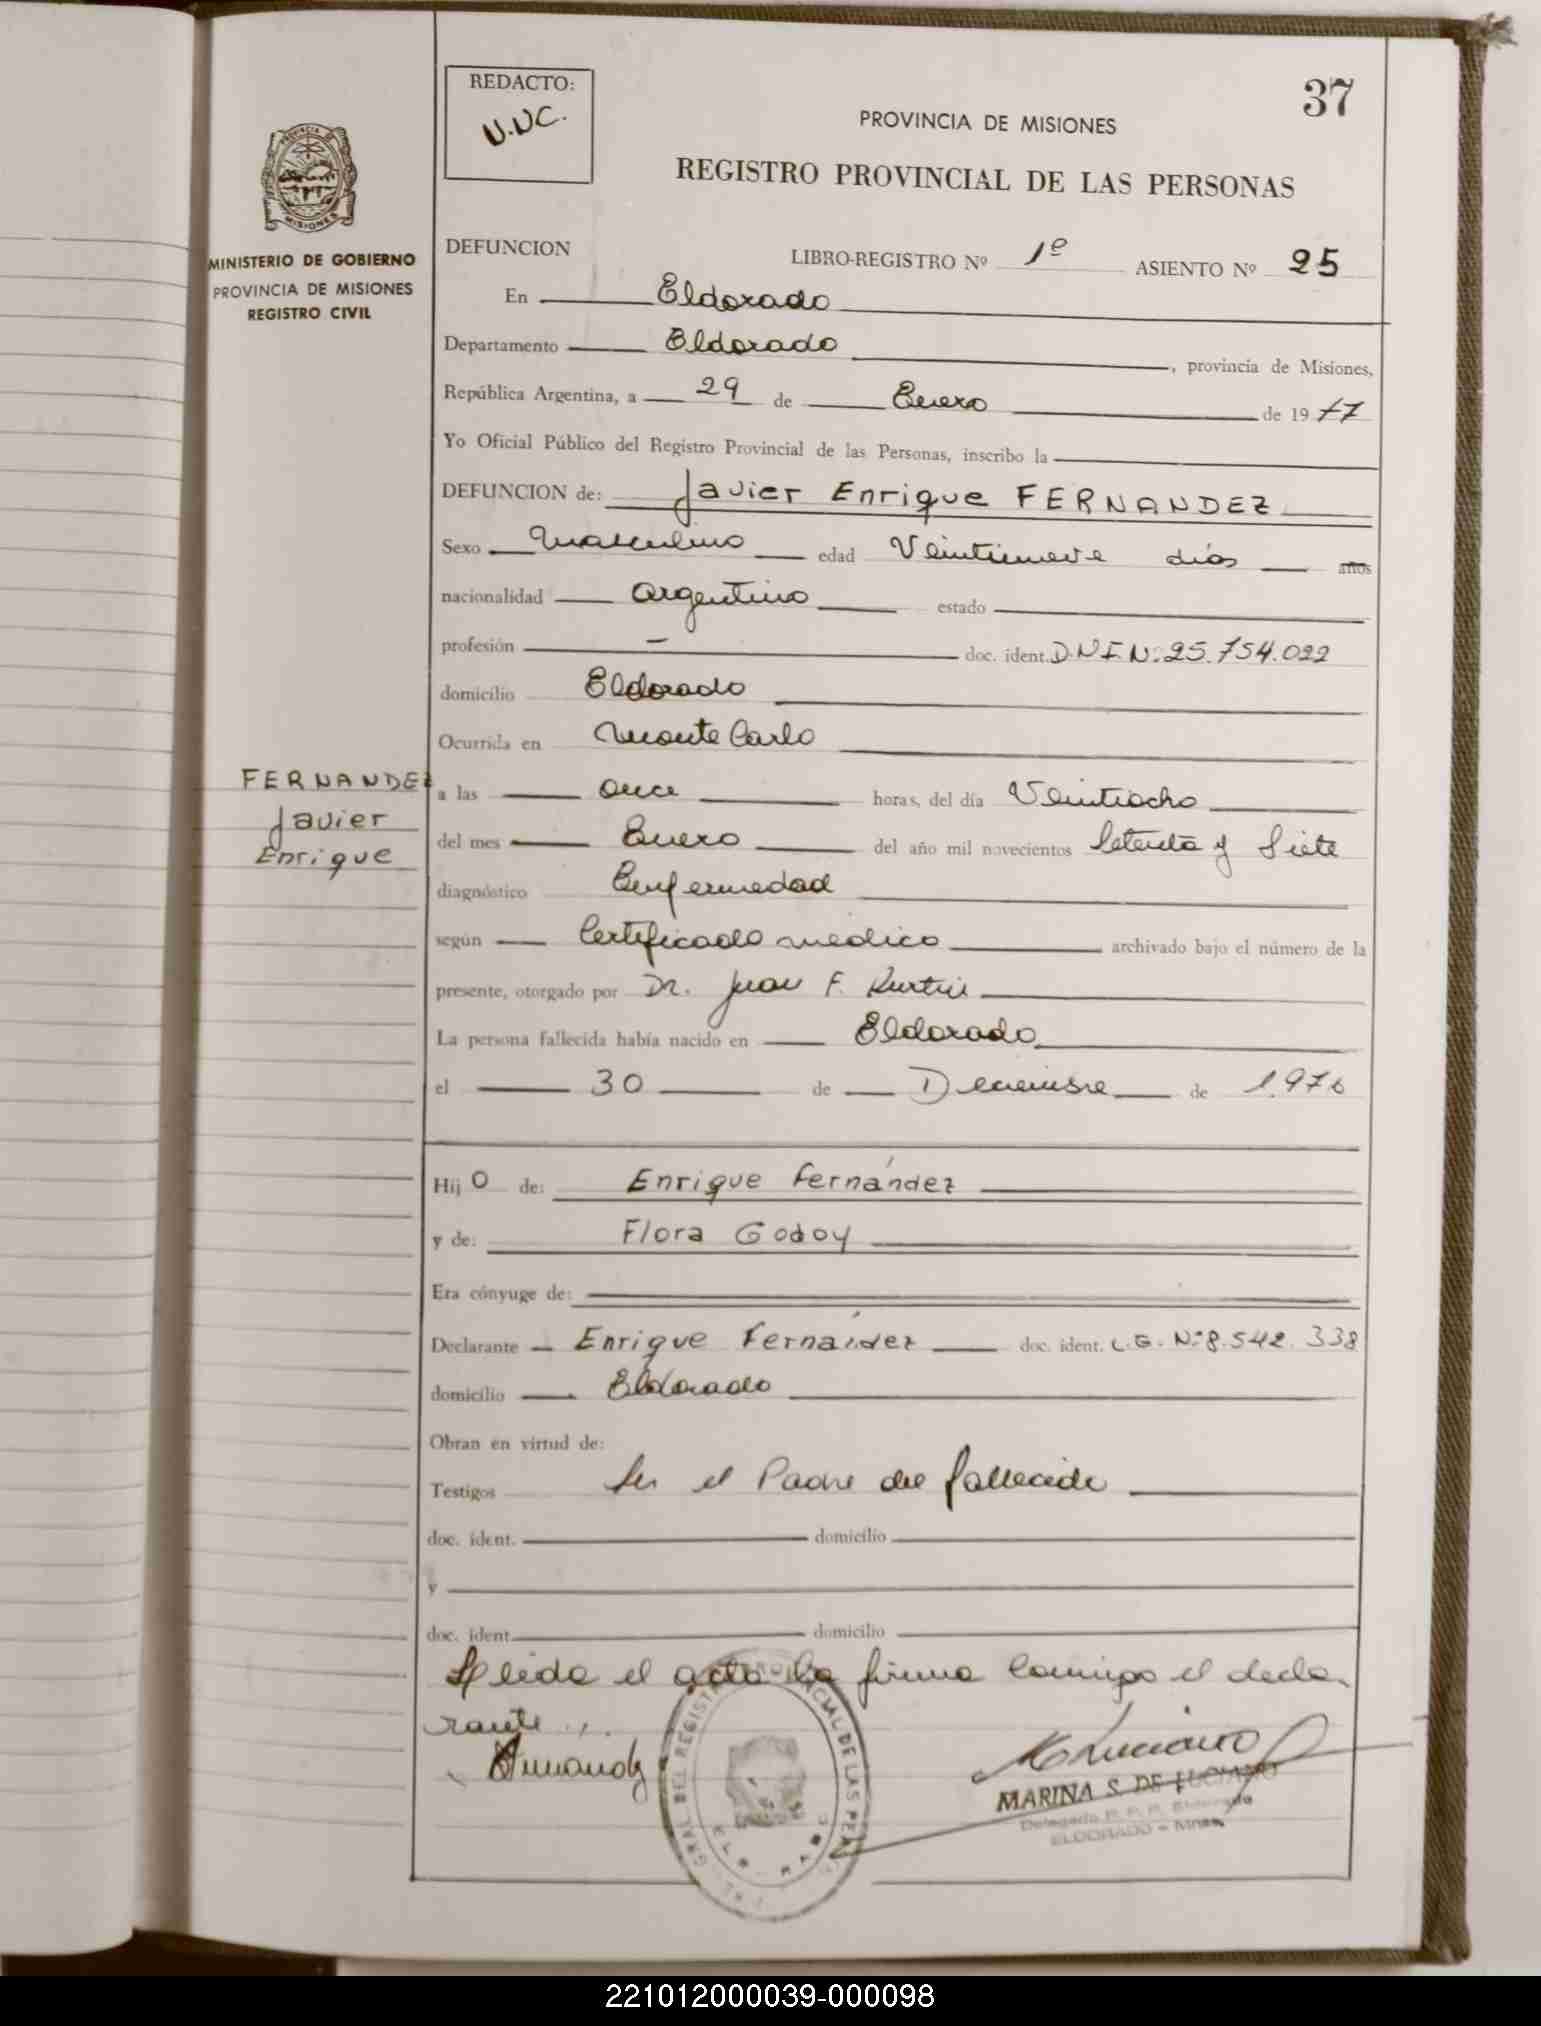 37
REDACTO:
U.U.C.
PROVINCIA DE MISIONES
REGISTRO PROVINCIAL DE LAS PERSONAS
MINISTERIO DE GOBIERNO
PROVINCIA DE MISIONES
REGISTRO CIVIL
DEFUNCION LIBRO-REGISTRO Nº 1º ASIENTO Nº 25
En Eldorado
Departamento Eldorado, provincia de Misiones,
República Argentina, a 29 de Enero de 1977
Yo Oficial Público del Registro Provincial de las Personas, inscribo la
DEFUNCION de: Javier Enrique FERNANDEZ
Sexo Masculino edad Veintinueve días años
nacionalidad argentino estado
profesión — doc. ident. D.N.I. N: 25.754.022
domicilio Eldorado
Ocurrida en Monte Carlo
FERNANDEZ
Javier
Enrique
a las once horas, del día Veintiocho
del mes Enero del año mil novecientos Setenta y Siete
diagnóstico Enfermedad
según Certificado medico archivado bajo el número de la
presente, otorgado por Dr. Juan F.
La persona fallecida había nacido en Eldorado
el 30 de Deciembre de 1.976
Hijo de: Enrique Fernández
y de: Flora Godoy
Era cónyuge de:
Declarante Enrique Fernández doc. ident. L.E. Nº 8.542.338
domicilio Eldorado
Obran en virtud de:
Testigos Ser el Padre del fallecido
doc. ident. domicilio
y
doc. ident. domicilio
Leida el acta la firma conmigo el decla-
rante
MARINA S. DE LUCIANO
Delegada R. P. P. Eldorado
ELDORADO - Mnes.
221012000039-000098